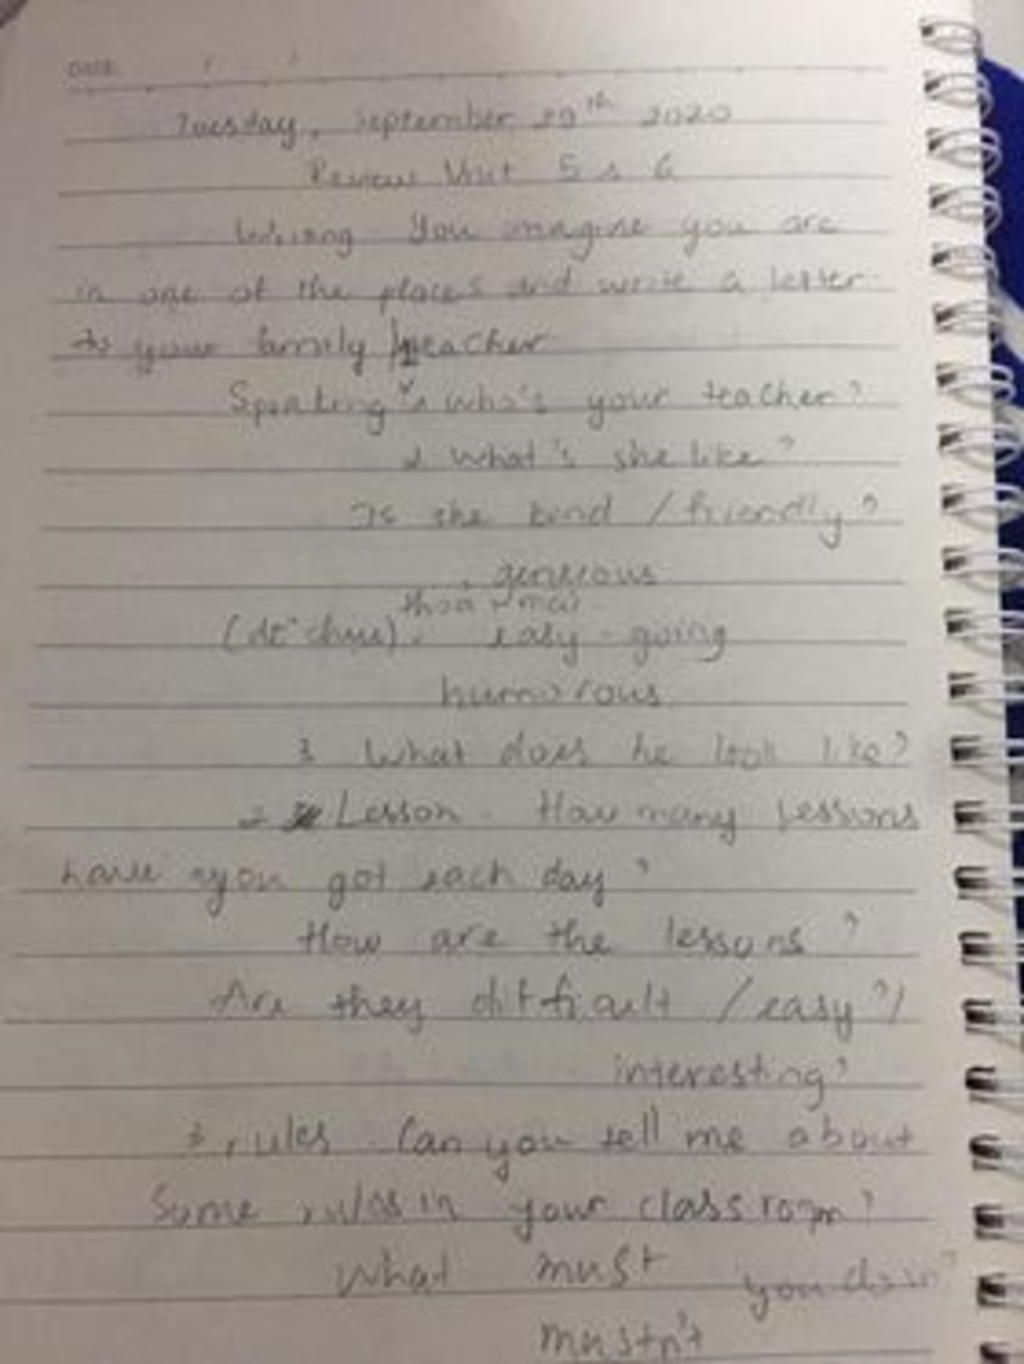 DATE: / /
Tuesday, September 29th 2020
Review Unit 5 & 6
You imagine you are
in one of the places and write a letter
to your family / teacher
Speaking 1 who's your teacher?
2 What's she like?
Is she kind / friendly?
, generous
easy - going
humorous
3 What does he look like?
2 Lesson. How many lessons
have you got each day?
How are the lessons?
Are they difficult / easy? /
interesting?
3, rules. Can you tell me about
Some rules in your classroom?
What must you do in
mustn't